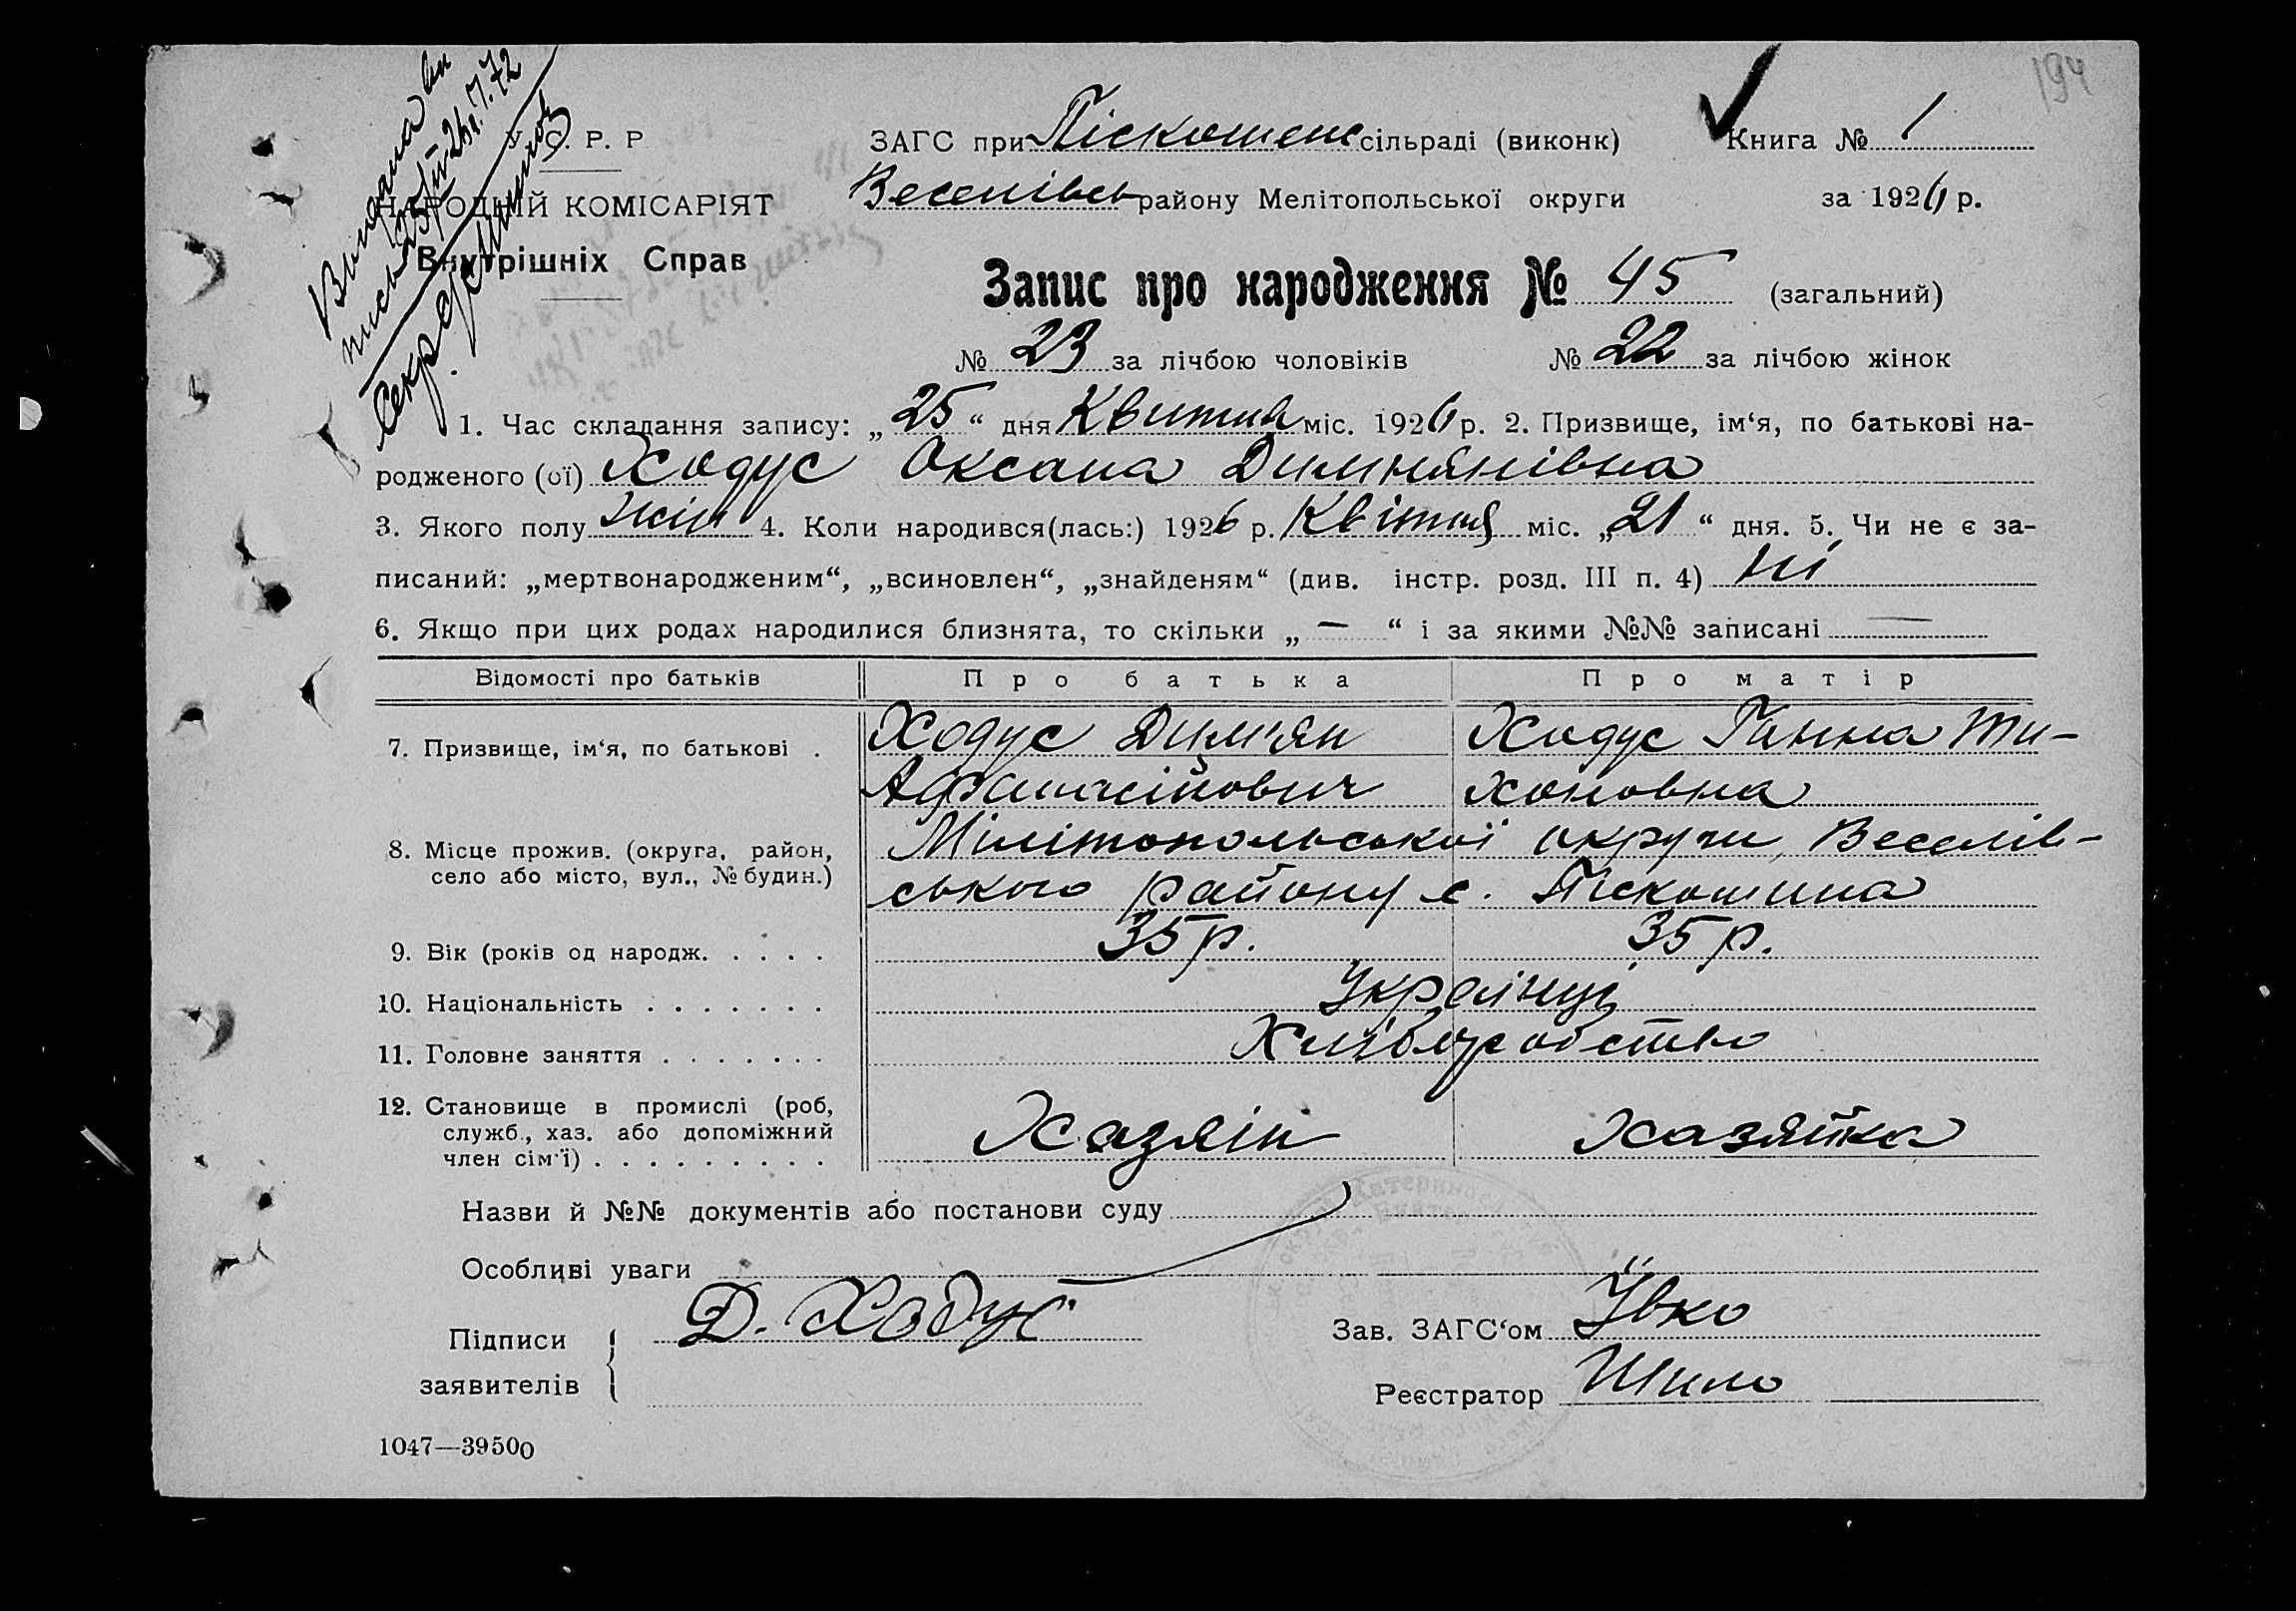 194
У. С. Р. Р
НАРОДНІЙ КОМІСАРІЯТ
Внутрішніх Справ
Выдана
25/IV-26 г.
ЗАГС при Піскошенс сільраді (виконк) Книга № 1
Веселівськ району Мелітопольської округи за 1926 р.
Запис про народження № 45 (загальний)
№ 23 за лічбою чоловіків № 22 за лічбою жінок
1. Час складання запису: „25“ дня Квитня міс. 1926 р. 2. Призвище, ім‘я, по батькові на-
родженого (ої) Ходус Оксана Димянівна
3. Якого полу жін 4. Коли народився(лась:) 1926 р. Квітня міс. „21“ дня. 5. Чи не є за-
писаний: „мертвонародженим“, „всиновлен“, „знайденям“ (див. інстр. розд. III п. 4) Ні
6. Якщо при цих родах народилися близнята, то скільки „—“ і за якими №№ записані —
Відомості про батьків Про батька Про матір
7. Призвище, ім‘я, по батькові . Ходус Дим'ян Ходус Ганна Ти-
Афанасійович хоновна
8. Місце прожив. (округа, район, Мілітопольської округи, Веселів-
село або місто, вул., № будин.) ського району с. Піскошина
9. Вік (років од народж. . . . . 35 р. 35 р.
10. Національність . . . . . . . Українці
11. Головне заняття . . . . . . . Хліборобство
12. Становище в промислі (роб, Хазяїн Хазяйка
служб., хаз. або допоміжний
член сім‘ї) . . . . . . . . .
Назви й №№ документів або постанови суду
Особливі уваги
Підписи Д. Ходус Зав. ЗАГС‘ом
заявителів Реєстратор Шило
1047—39500